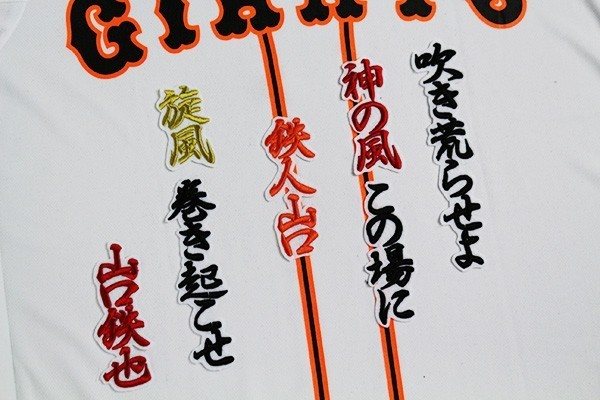 GIANTS
吹き荒らせよ
神の風この場に
鉄人山口
旋風巻き起こせ
山口鉄也